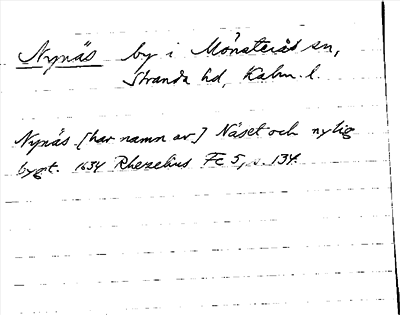 Nynäs by i Mönsterås sn,
Stranda hd, Kalm. l.
Nynäs [har namn av] Näset och nylig
bygt. 1634 Rhezelius Fc 5, s. 134.